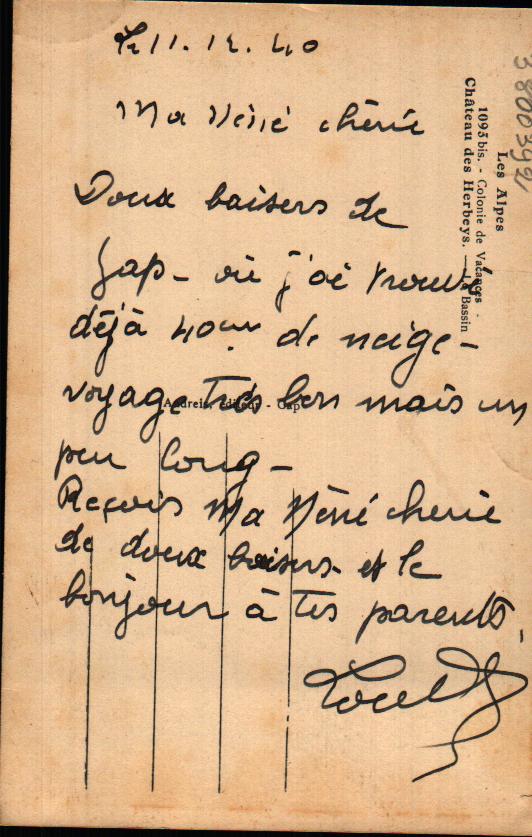 Le 11.12.40
Ma Néné chérie
Doux baisers de
Gap - où j'ai trouvé
déjà 40cm de neige -
voyage très bon mais un
peu long -
Reçois Ma Néné cherie
de doux baisers et le
bonjour à tes parents -
Les Alpes
1095 bis. - Colonie de Vacances -
Château des Herbeys. — Le Bassin
Andreis, éditeur - Gap